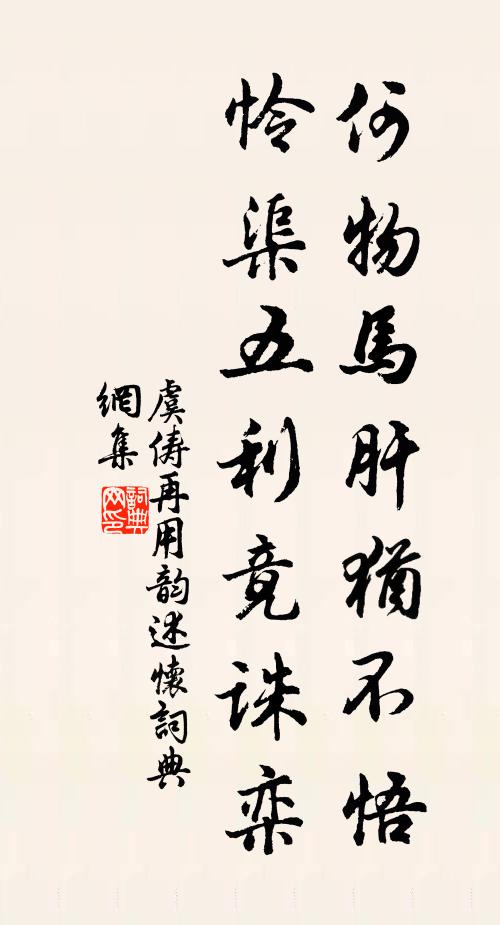 何物馬肝猶不悟
怜渠五利竟誅栾
虞俦再用韵述懷詞典
網集
詞典网印